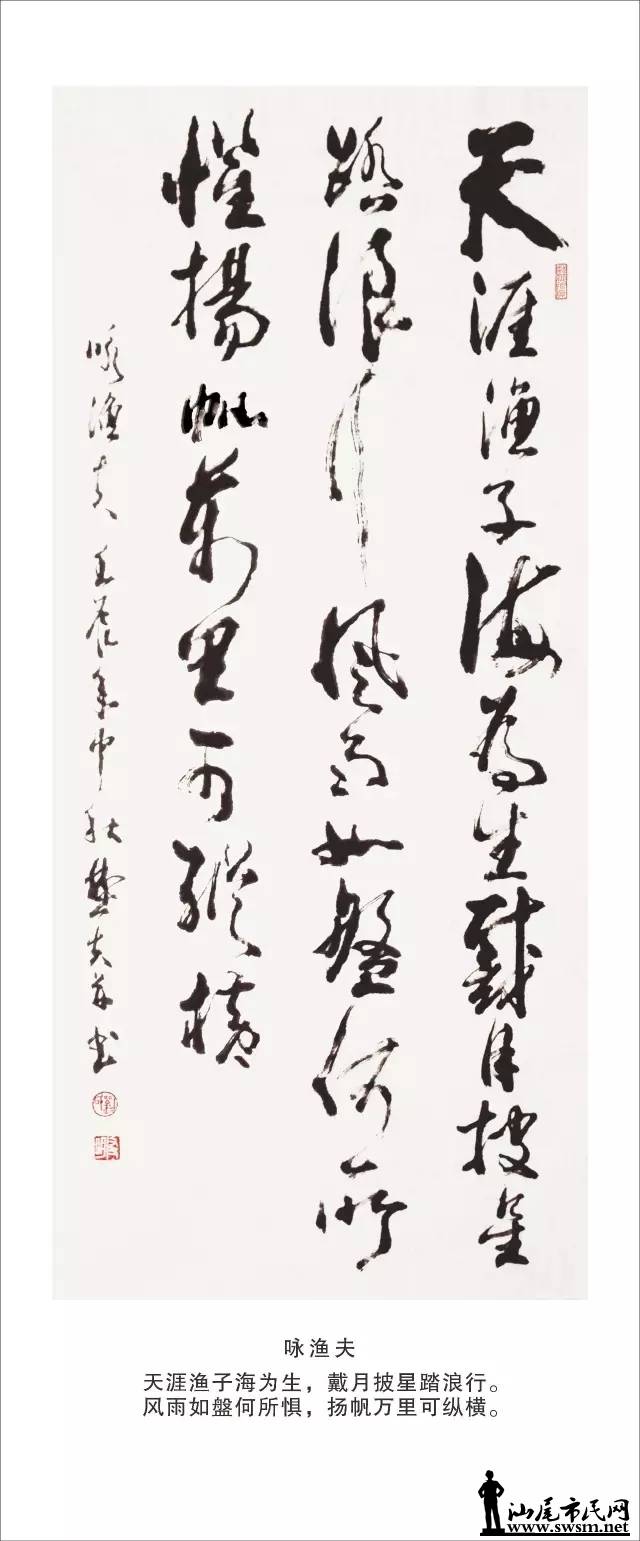 天涯漁子海為生戴月披星
踏浪行風雨如盤何所
懼揚帆萬里可縱橫
咏漁夫 壬辰年中秋 书
咏渔夫
天涯渔子海为生，戴月披星踏浪行。
风雨如盤何所惧，扬帆万里可纵横。
汕尾市民网
www.swsm.net